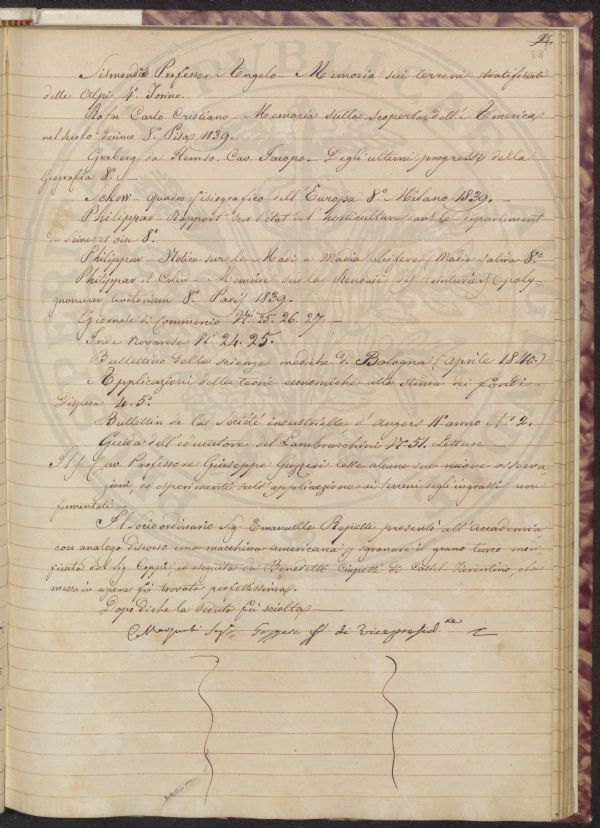 95
48
Sismonda Professor Angelo – Memoria sui terreni stratificati
delle Alpi 4.° Torino.
Rafn Carlo Cristiano – Memoria sulla scoperta dell' America
nel secolo decimo 8.° Pisa 1839.
Graberg da Hemso. Cav. Jacopo – Degli ultimi progressi della
Geografia 8.° –
Schow – quadro fisiografico dell' Europa 8.° Milano 1839. –
Philippar – Rapport sur l'état de l'horticulture dans le departement
de Seine et oise 8.°
Philippar – Notice sur le Madi a Madia oleifere (Madia sativa 8.°
Philippar et Colin – Memoire sur la Renouée des teinturiers (poly-
gnonum tinctorium 8.° Paris 1839.
Giornale di Commercio N.i 25. 26. 27. –
Iride Novarese N.i 24. 25. –
Bullettino delle scienze mediche di Bologna (Aprile 1840.)
Applicazioni delle teorie economiche alla stima dei fondi –
Dispensa 4. 5.a
Bullettin de la Société industrielle d'Angers 11.e anno N.° 2.
Guida dell' educatore del Lambruschini N.° 51. Letture –
Il Sig. Cav. Professore Giuseppe Gazzeri lesse alcune sue nuove osserva-
zioni, ed esperimenti sull' applicazione ai terreni degli ingrassi non
fermentati –
Il Socio ordinario Sig. Emanuelle Repetti presentò all' Accademia
con analogo discorso una macchina americana p. sgranare il grano turco modi-
ficata dal Sig. Coppi, ed eseguita da Benedetto Ciapetti di Castel Fiorentino, che
messa in opera fù trovata perfettissima.
Dopo di che la seduta fù sciolta –
Seg.° Gazzeri ff. di Vicepresid.te